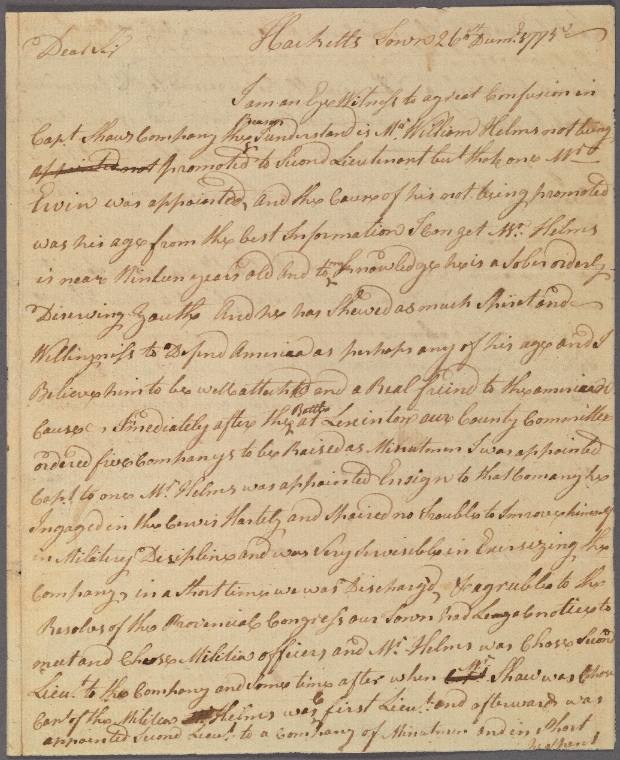 Hacketts Town 26th Decmr. 1775
Dear Sir
I am an Eye Witness to a great Confusion in
Capt. Shaws Company the reason I understand is Mr. William Helms not being
appointed not promoted to Second Lieutenant but that one Mr.
Ervin was appointed, and the Cause of his not being promoted
was his age from the best Information I Can get Mr. Helms
is near Ninteen years old and to my knowledge he is a Sober orderly
Diserving Youth And he has Shewed as much Spirit and
Willingness to Defend America as perhaps any of his age and I
Believe him to be well attached and a Real friend to the american
Cause Imediately after the Battle at Lexinton our County Committee
ordered five Companys to be Raised as Minutmen I was appointed
Capt. to one Mr. Helms was appointed Ensign to that Comany he
Ingaged in the Servis Hartely and Spaired no trouble to Improve himself
in Militery Discipline and was very Servisible in Exersizing the
Company, in a Short time we was Discharg'd, & agruble to the
Resolve of the Provincial Congress our Town had Leagal notice to
meet and Chose Militia officers and Mr. Helms was Chose Second
Lieut. to the Company and Some time after when Mr. Shaw was Chose
Capt. of the Militia Helms was first Lieut. and afterwards was
appointed Second Lieut. to a Company of Minutmen and in Short